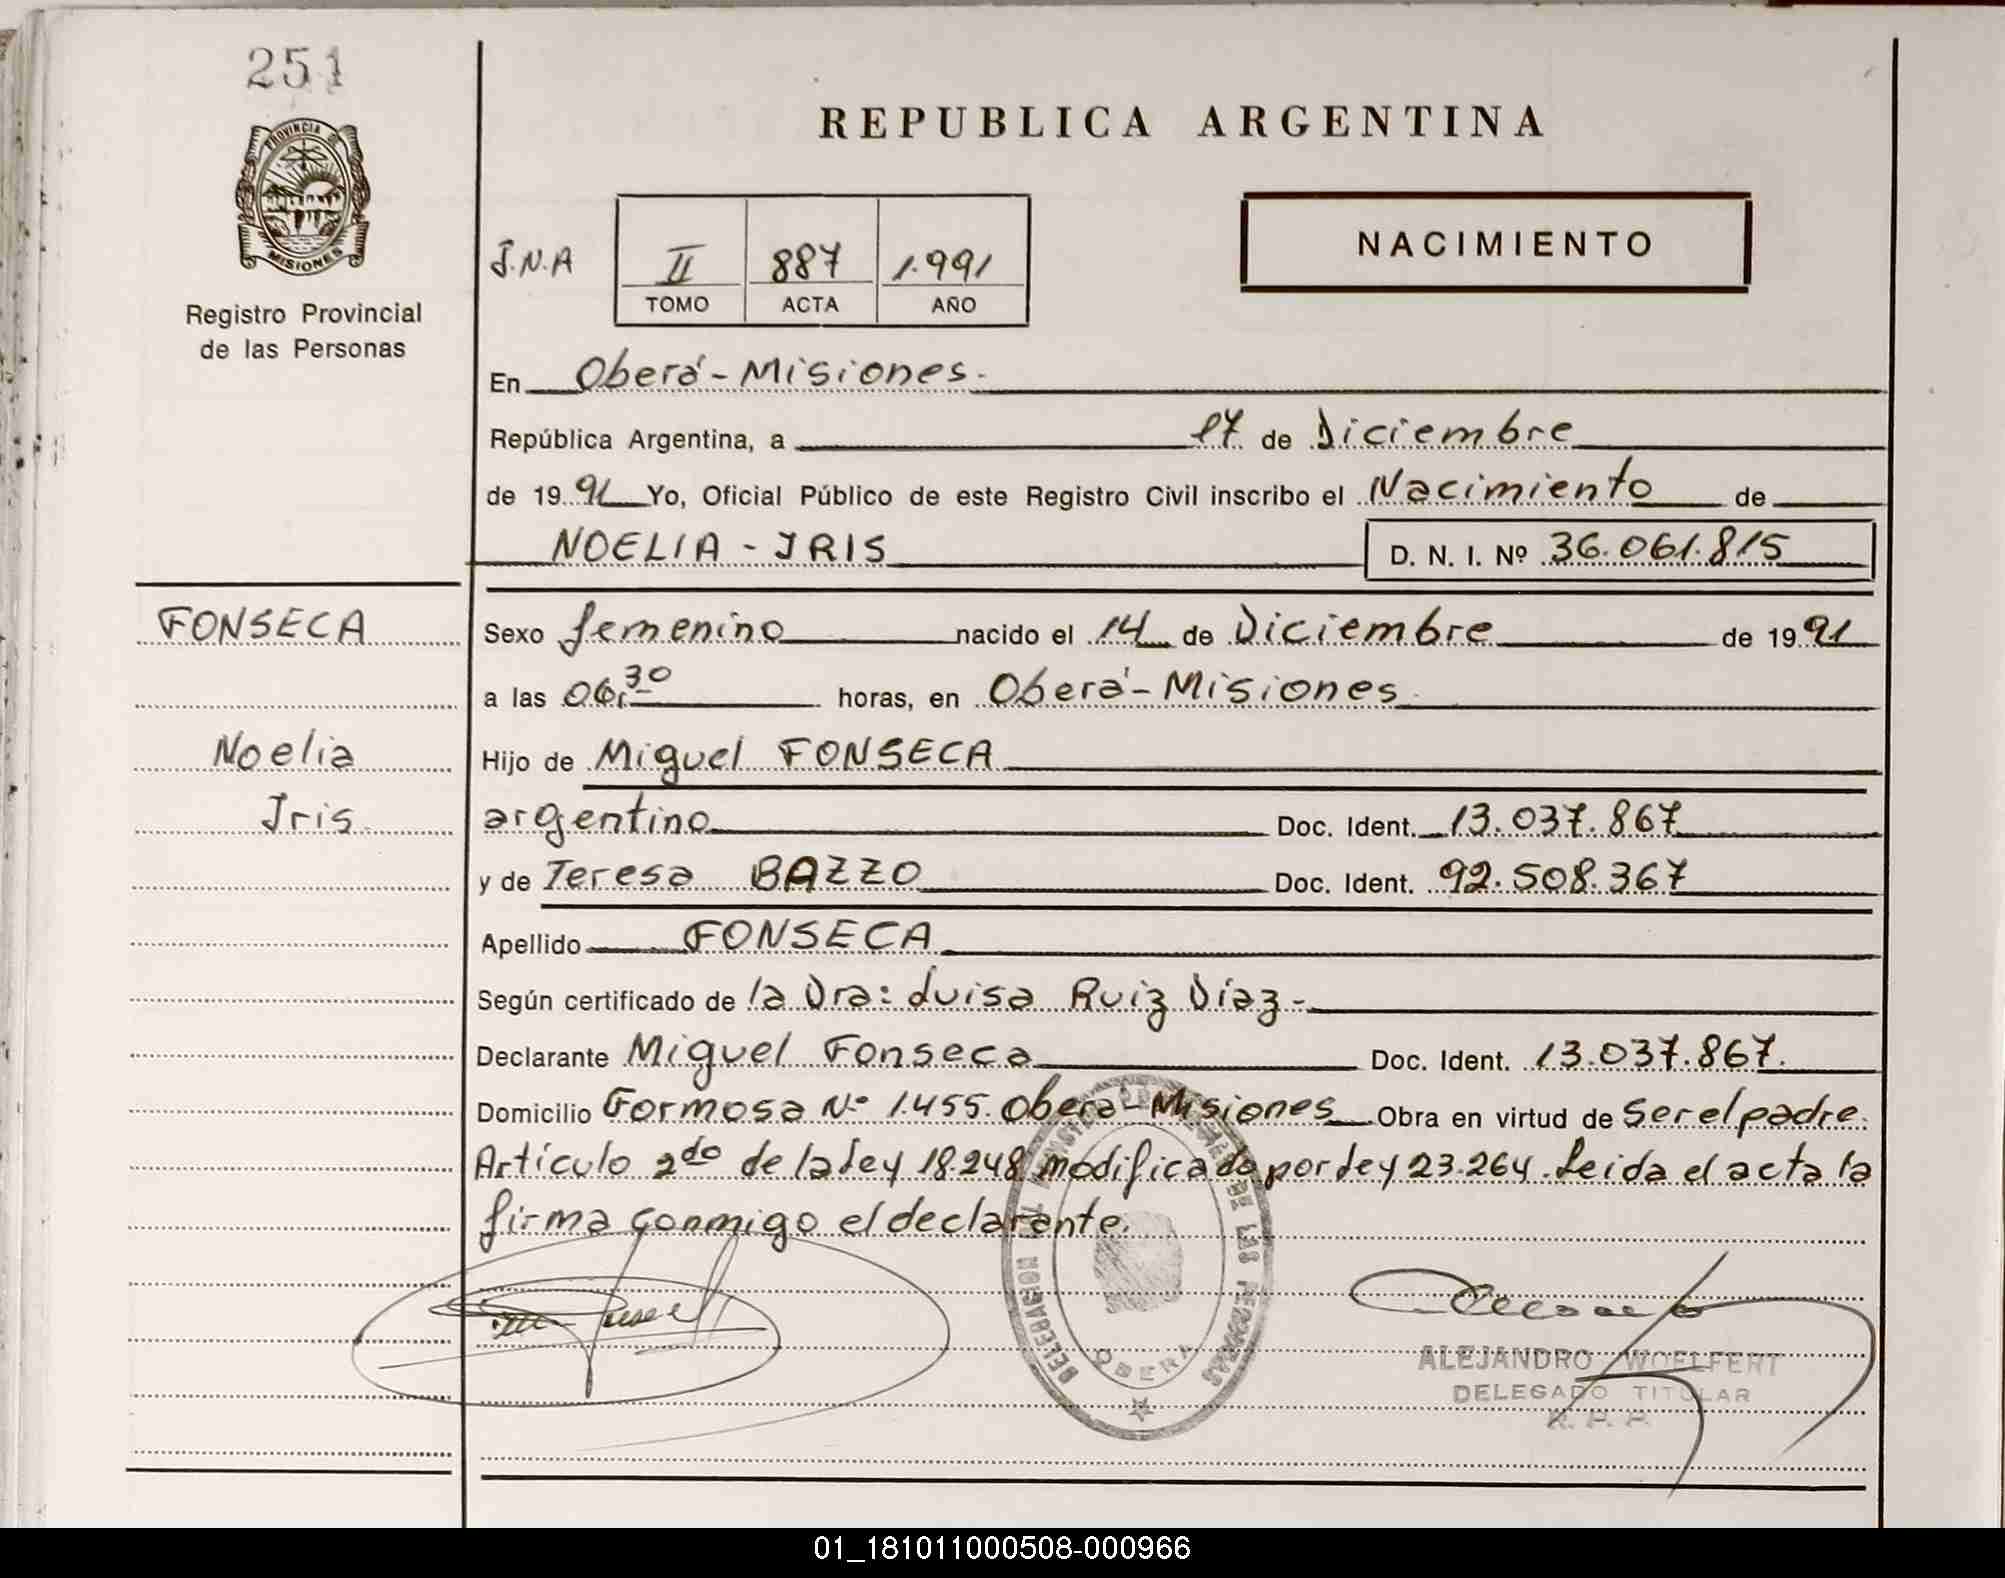 251
PROVINCIA DE
MISIONES
Registro Provincial
de las Personas
REPUBLICA ARGENTINA
NACIMIENTO
J.N.A II 887 1.991
TOMO ACTA AÑO
En Oberá - Misiones.
República Argentina, a 17 de Diciembre
de 1991 Yo, Oficial Público de este Registro Civil inscribo el Nacimiento de
NOELIA - IRIS D. N. I. Nº 36.061.815
FONSECA
Noelia
Iris
Sexo femenino nacido el 14 de Diciembre de 1991
a las 06,30 horas, en Oberá - Misiones
Hijo de Miguel FONSECA
argentino Doc. Ident. 13.037.867
y de Teresa BAZZO Doc. Ident. 92.508.367
Apellido FONSECA
Según certificado de la Dra: Luisa Ruiz Díaz -
Declarante Miguel Fonseca Doc. Ident. 13.037.867.
Domicilio Formosa Nº 1.455. Oberá - Misiones Obra en virtud de ser el padre.
Artículo 2do de la Ley 18.248 modificado por Ley 23.264. Leida el acta la
firma conmigo el declarante.
DE LAS PERSONAS
OBERA
ALEJANDRO WOELFERT
DELEGADO TITULAR
R. P. P.
01_181011000508-000966